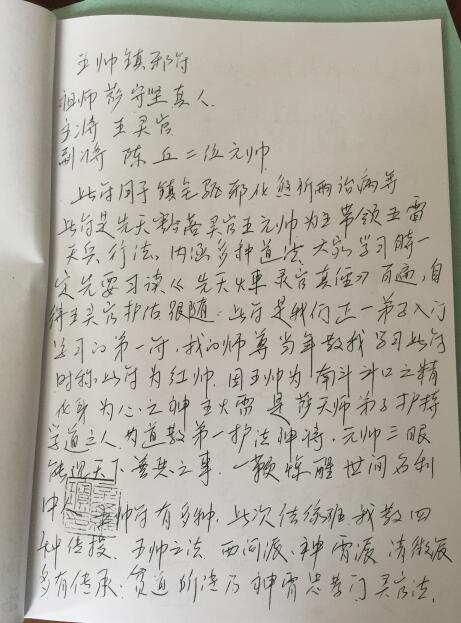 王帅镇邪符
祖师萨守坚真人
主将 王灵官
副将 陈 丘 二位元帅
此符用于镇宅驱邪化煞祈雨治病等
此符是先天豁落灵官王元帅为主带领五雷
天兵行法。内涵多种道法。大家学习时一
定先要习读《先天火车灵官真经》百遍，自
得王灵官护佑跟随。此符是我们正一弟子入门
学习的第一符，我的师尊当年教我学习此符
时称此符为红帅。因王帅为南斗斗口之精
化身为心之神主火雷是萨天师弟子护持
学道之人。为道教第一护法神将，元帅三眼
能观天下善恶之事。一鞭惊醒世间名利
帅符有多种。此次传练班我教四
种传授。王帅之法 西河派、神霄派 清微派
多有传承：贫道所法乃神霄 灵官法。